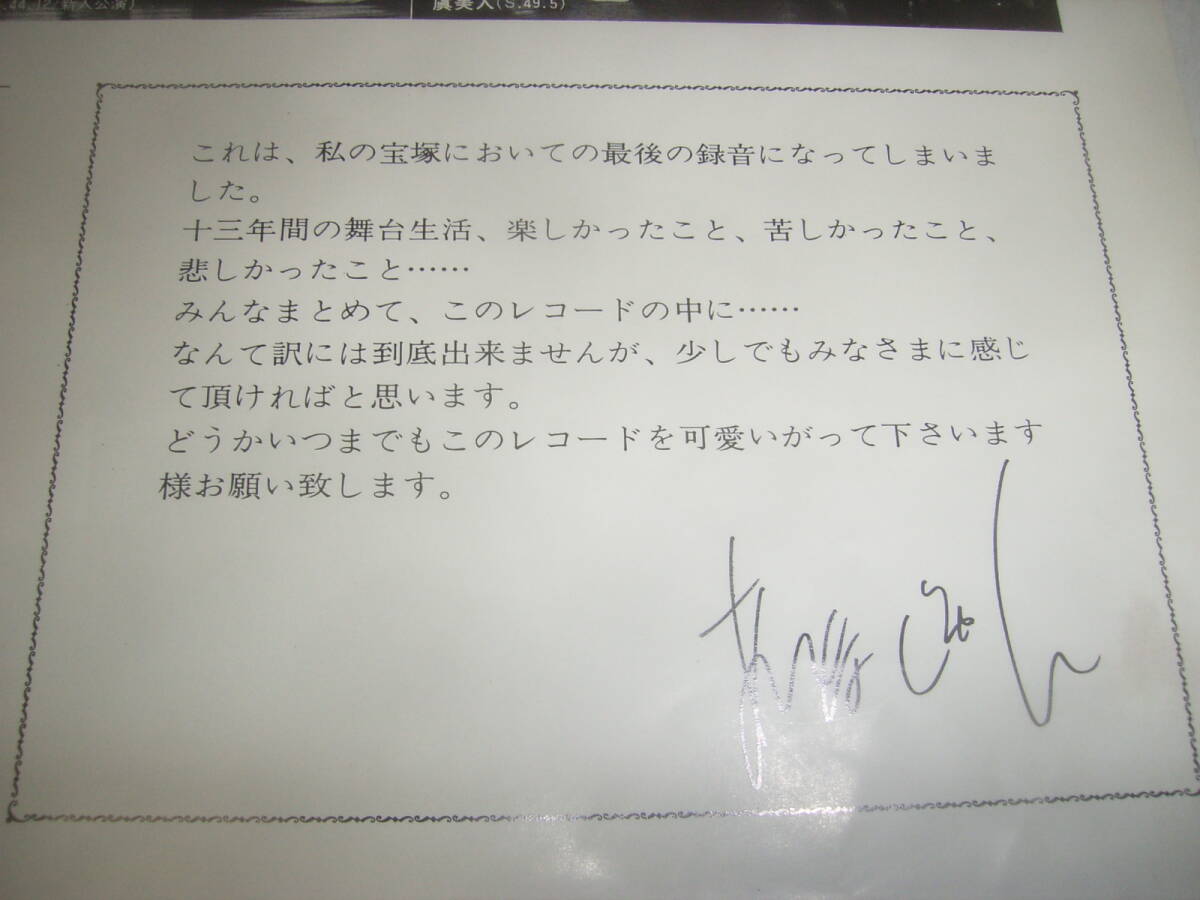 .44.12/新人公演)
虞美人(S.49.5)
これは、私の宝塚においての最後の録音になってしまいま
した。
十三年間の舞台生活、楽しかったこと、苦しかったこと、
悲しかったこと……
みんなまとめて、このレコードの中に……
なんて訳には到底出来ませんが、少しでもみなさまに感じ
て頂ければと思います。
どうかいつまでもこのレコードを可愛いがって下さいます
様お願い致します。